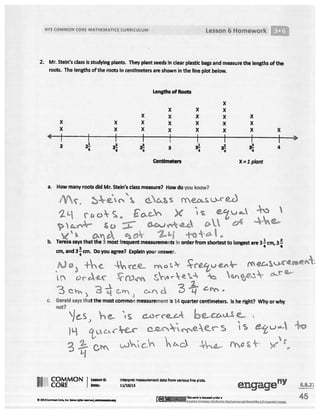 NYS COMMON CORE MATHEMATICS CURRICULUM
Lesson 6 Homework
3•6
2. Mr. Stein's class is studying plants. They plant seeds in clear plastic bags and measure the lengths of the
roots. The lengths of the roots in centimeters are shown in the line plot below.
Lengths of Roots
X
X X X
X X X X X
X X X X X X X
X X X X X X X X
2
3
4
Centimeters
X = 1 plant
a. How many roots did Mr. Stein's class measure? How do you know?
Mr. Stein's class measured
24 roots. Each X is equal to 1
plant so I counted all of the
X's and got 24 total.
b. Teresa says that the 3 most frequent measurements in order from shortest to longest are 3 1/4 cm, 3 2/4
cm, and 3 3/4 cm. Do you agree? Explain your answer.
No, the three most frequent measurements
in order from shortest to longest are
3 cm, 3 1/4 cm, and 3 2/4 cm.
c. Gerald says that the most common measurement is 14 quarter centimeters. Is he right? Why or why
not?
Yes, he is correct because
14 quarter centimeters is equal to
3 2/4 cm which had the most x's.
COMMON
CORE
Lesson 6:
Interpret measurement data from various line plots.
engage ny
45